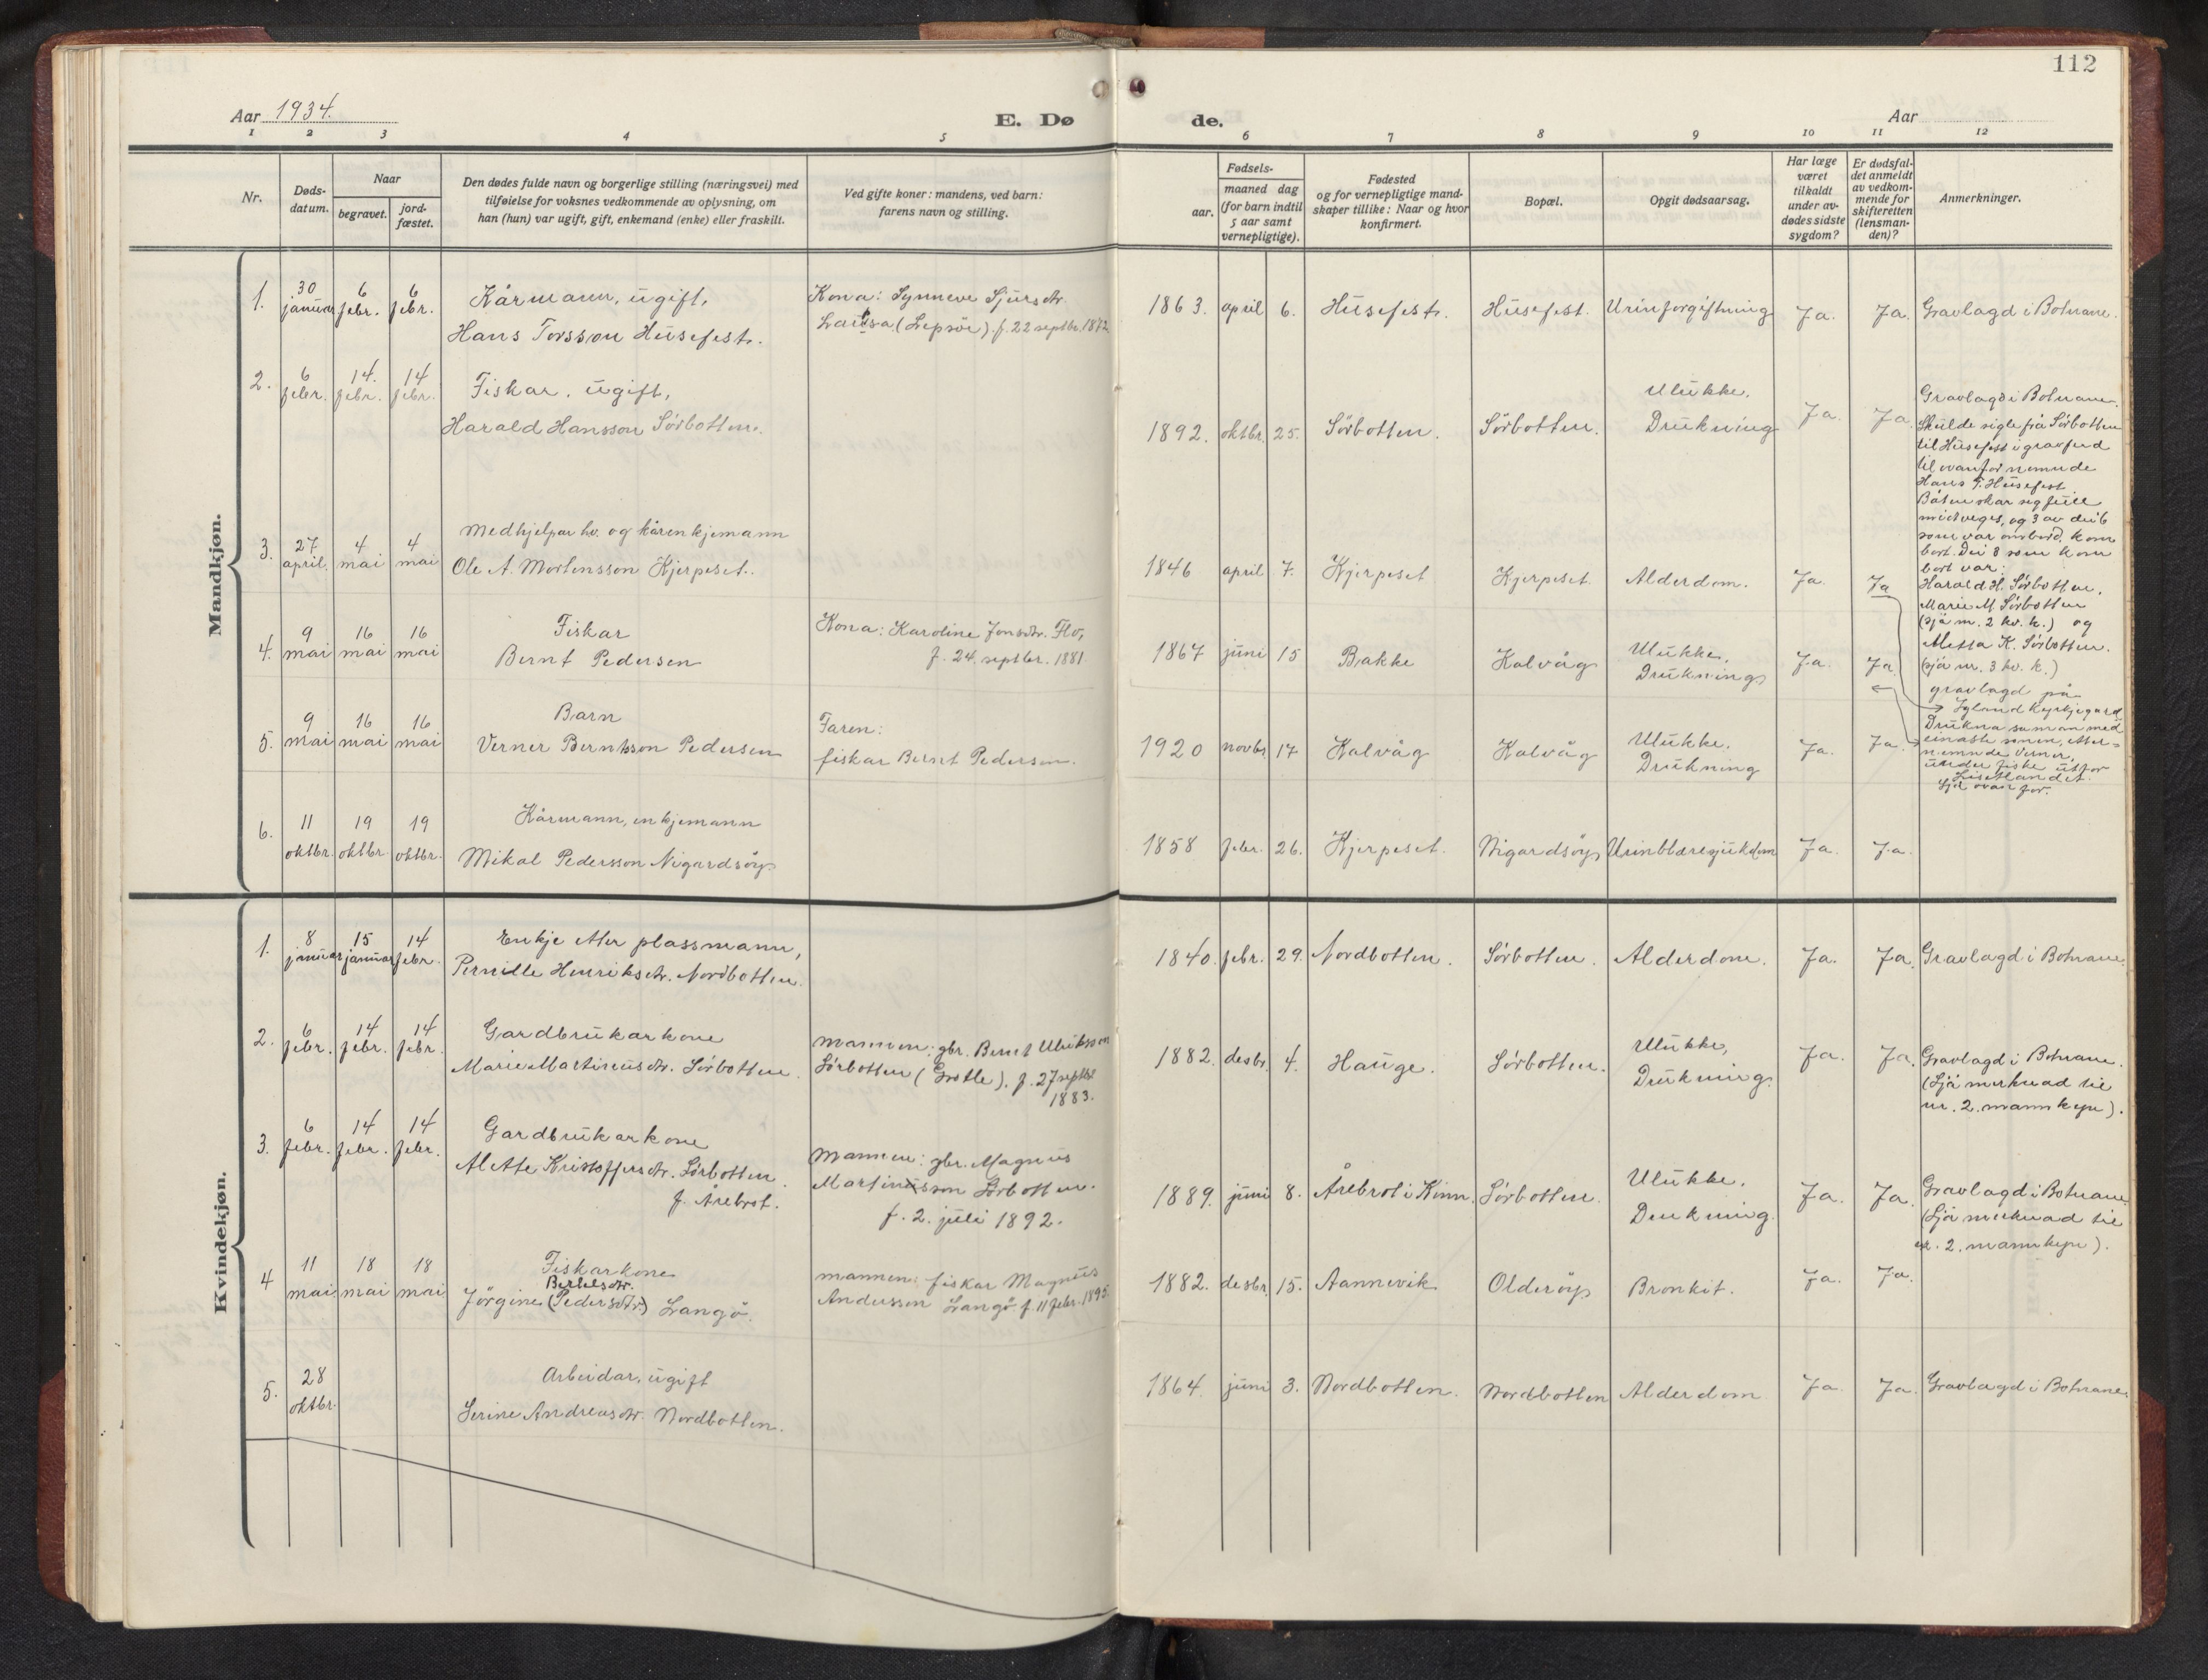 112
Aar 1934.
E. Dø
de.
Aar
1 2 3 4 5 6 7 8 9 10 11 12
Nr.
Døds-
datum.
Naar
begravet.
jord-
fæstet.
Den dødes fulde navn og borgerlige stilling (næringsvei) med
tilføielse for voksnes vedkommende av oplysning, om
han (hun) var ugift, gift, enkemand (enke) eller fraskilt.
Ved gifte koner: mandens, ved barn:
farens navn og stilling.
Fødsels-
aar.
maaned dag
(for barn indtil
5 aar samt
vernepligtige).
Fødested
og for vernepligtige mand-
skaper tillike: Naar og hvor
konfirmert.
Bopæl.
Opgit dødsaarsag.
Har læge
været
tilkaldt
under av-
dødes sidste
sygdom?
Er dødsfal-
det anmeldt
av vedkom-
mende for
skifteretten
(lensman-
den)?
Anmerkninger.
Mandkjøn.
1. 30 januar 6 febr. 6 febr.
Kårmann, ugift,
Hans Torsson Husefest.
Kona: Synneve Sjursdtr.
(Lepsöe) f. 22 septbr. 1872.
1863. april 6. Husefest. Husefest. Urinforgiftning Ja. Ja. Gravlagd i Botnane.
2. 6 febr. 14. febr. 14 febr.
Fiskar, ugift,
Harald Hansson Sörbotten.
1892. oktbr. 25. Sörbotten. Sörbotten.
Ulukke.
Drukning
Ja. Ja.
Gravlagd i Botnane.
Skulde sigle frå Sörbotten
til Husefest i gravferd
til ovanfor nemnde
Hans T. Husefest.
Båten skar seg full
midtveges, og 3 av dei 6
som var ombord, kom
bort. Dei 3 som kom
bort var:
Harald H. Sörbotten,
Marie M. Sörbotten
(sjå nr. 2 kv. k.) og
Aletta K. Sörbotten.
(sjå nr. 3 kv. k.)
3. 27 april. 4 mai 4 mai
Medhjelpar hv. og kårenkjemann
Ole A. Mortensson Kjerpeset.
1846 april 7. Kjerpeset Kjerpeset. Alderdom. Ja. Ja
gravlagd på
Igland kyrkjegard
4. 9 mai 16 mai 16 mai
Fiskar
Bernt Pedersen
Kona: Karoline Jonsdtr. Flo,
f. 24. septbr. 1881
1867 juni 15 Bakke Kalvåg
Ulukke.
Drukning
Ja. Ja
Drukna saman med
einaste sonen, etter-
nemnde Verner,
under fiske utfor
5. 9 mai 16 mai 16 mai
Barn
Verner Berntsson Pedersen
Faren:
fiskar Bernt Pedersen.
1920 novbr. 17. Kalvåg Kalvåg
Ulukke.
Drukning
Ja. Ja.
Sjå ovanfor.
6. 11 oktbr. 19 oktbr. 19 oktbr.
Kårmann, enkjemann
Mikal Pedersson Nigardsöy
1858 febr. 26. Kjerpeset. Nigardsöy Urinblæresjukdom Ja. Ja.
Kvindekjøn.
1. 8 januar 15 januar 14 febr.
Enkje etter plassmann,
Pernille Henriksdtr. Nordbotten.
1840. febr. 29. Nordbotten. Sörbotten. Alderdom. Ja. Ja. Gravlagd i Botnane.
2. 6 febr. 14 febr. 14 febr.
Gardbrukarkone
Marie Martinusdtr. Sörbotten.
Mannen: gbr. Bernt Ulriksson
Sörbotten (Grotle). f. 27 septbr.
1883.
1882. desbr. 4. Hauge. Sörbotten.
Ulukke,
Drukning.
Ja. Ja.
Gravlagd i Botnane.
(Sjå merknad til
nr. 2. mannkyn).
3. 6 febr. 14 febr. 14 febr.
Gardbrukarkone
Aletta Kristoffersdtr. Sörbotten.
f. Årebrot.
Mannen: gbr. Magnus
Martinusson Sörbotten.
f. 2. juli 1892.
1889. juni 8. Årebrot i Kinn. Sörbotten.
Ulukke.
Drukning.
Ja. Ja.
Gravlagd i Botnane
(Sjå merknad til
nr. 2. mannkyn).
4 11 mai 18 mai 18 mai
Fiskarkone
Bertelsdtr.
Jörgine (Pedersdtr.) Langö.
mannen: fiskar Magnus
Andersson Langö f. 11 febr. 1895.
1882. desbr. 15. Aannevik Olderöy Bronkit. Ja. Ja.
5. 28 oktbr.
Arbeidar, ugift
Serine Andreasdtr. Nordbotten.
1864. juni 3. Nordbotten. Nordbotten Alderdom Ja. Ja. Gravlagd i Botnane